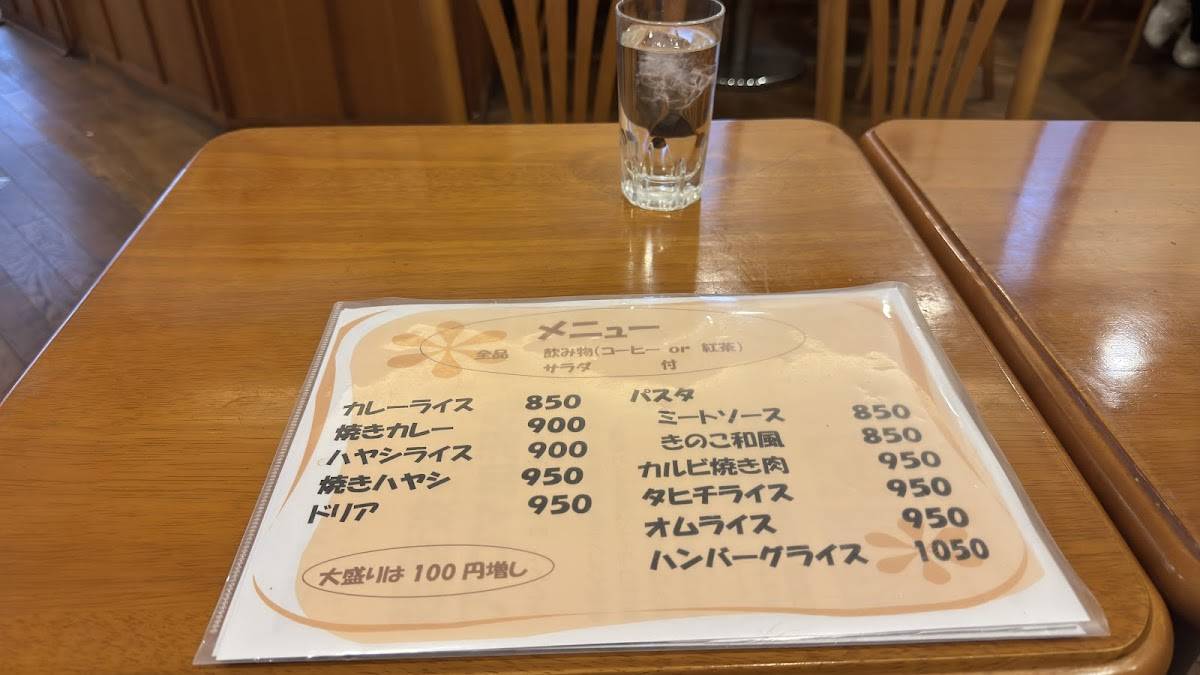 メニュー
全品 飲み物(コーヒー or 紅茶)
サラダ 付
カレーライス 850
焼きカレー 900
ハヤシライス 900
焼きハヤシ 950
ドリア 950
大盛りは 100 円増し
パスタ
ミートソース 850
きのこ和風 850
カルビ焼き肉 950
タヒチライス 950
オムライス 950
ハンバーグライス 1050